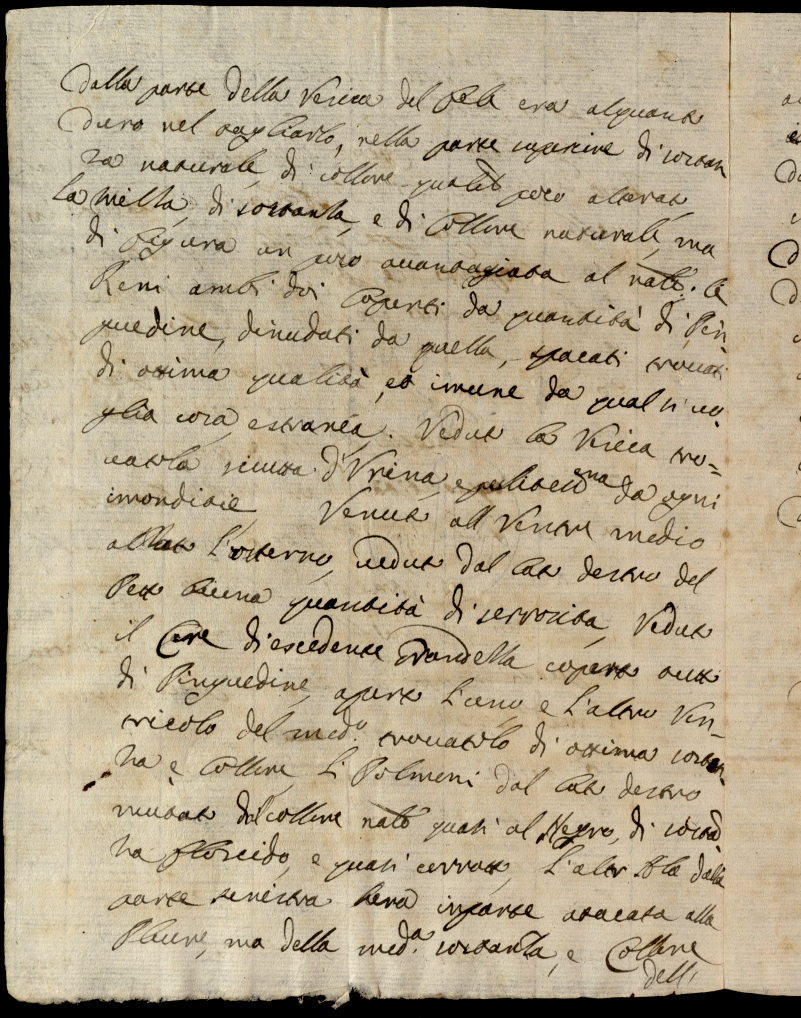 Dalla parte della Vesica del fele era alquanto
duro nel tagliarlo, nella parte superiore di sostan
za naturale, di collore qualto poco alterato
La milla, di sostanza, e di Collore naturale, ma
di figura un poco avantagiata al nalle. le
Reni ambi doi Coperti da quantità di Pin
guedine, dinudati da quella, spacati trovati
di ottima qualità, et imune da qual si vo
glia cosa estranea. Veduto la Vesica tro=
vatola senza d'Vrina, e da ogni
imondizie Venuto all Ventre medio
alzato l'osterno, veduto dal lato destro del
Peto buena quantità di serrosita, Veduto
il Core di escedente Grandella coperto tutto
di Pinguedine, aperto l'uno e l'altro Ven-
tricolo del med.o trovatolo di ottima sostan
za e Collore, Li Polmoni dal lato destro
mutato dal collore nalto quasi al Negro, di sosta
za floscido, e quasi, L'altr Ala dalla
parte senistra hera inparte atacata alla
Pleure, ma della med.a sostanza, e Collore
delli